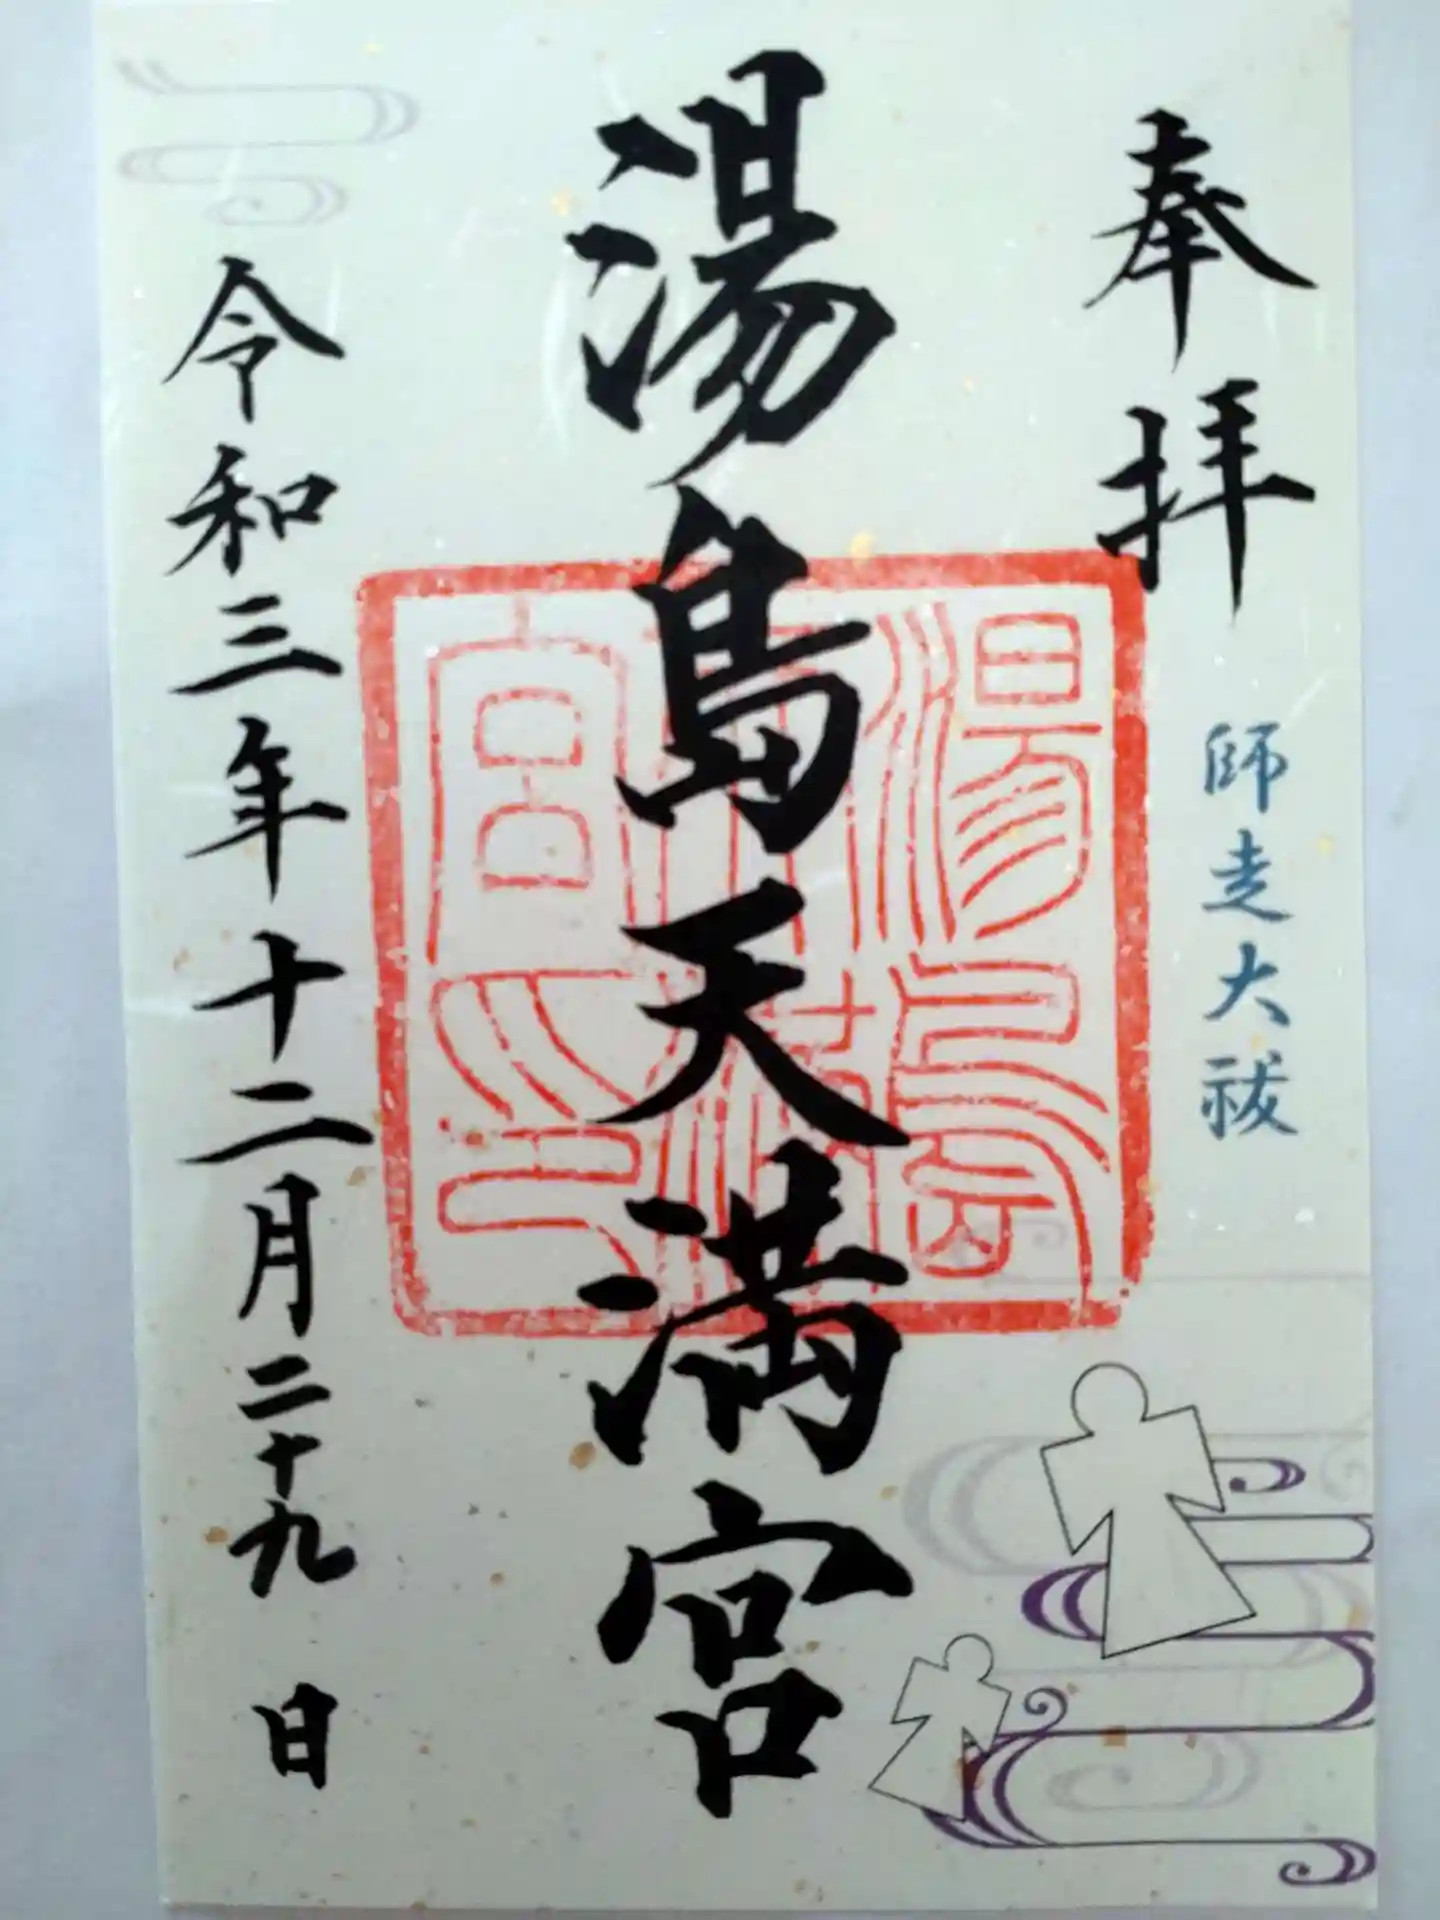 奉拝
師走大祓
湯島天満宮
湯島
天神
宮印
令和三年十二月二十九日